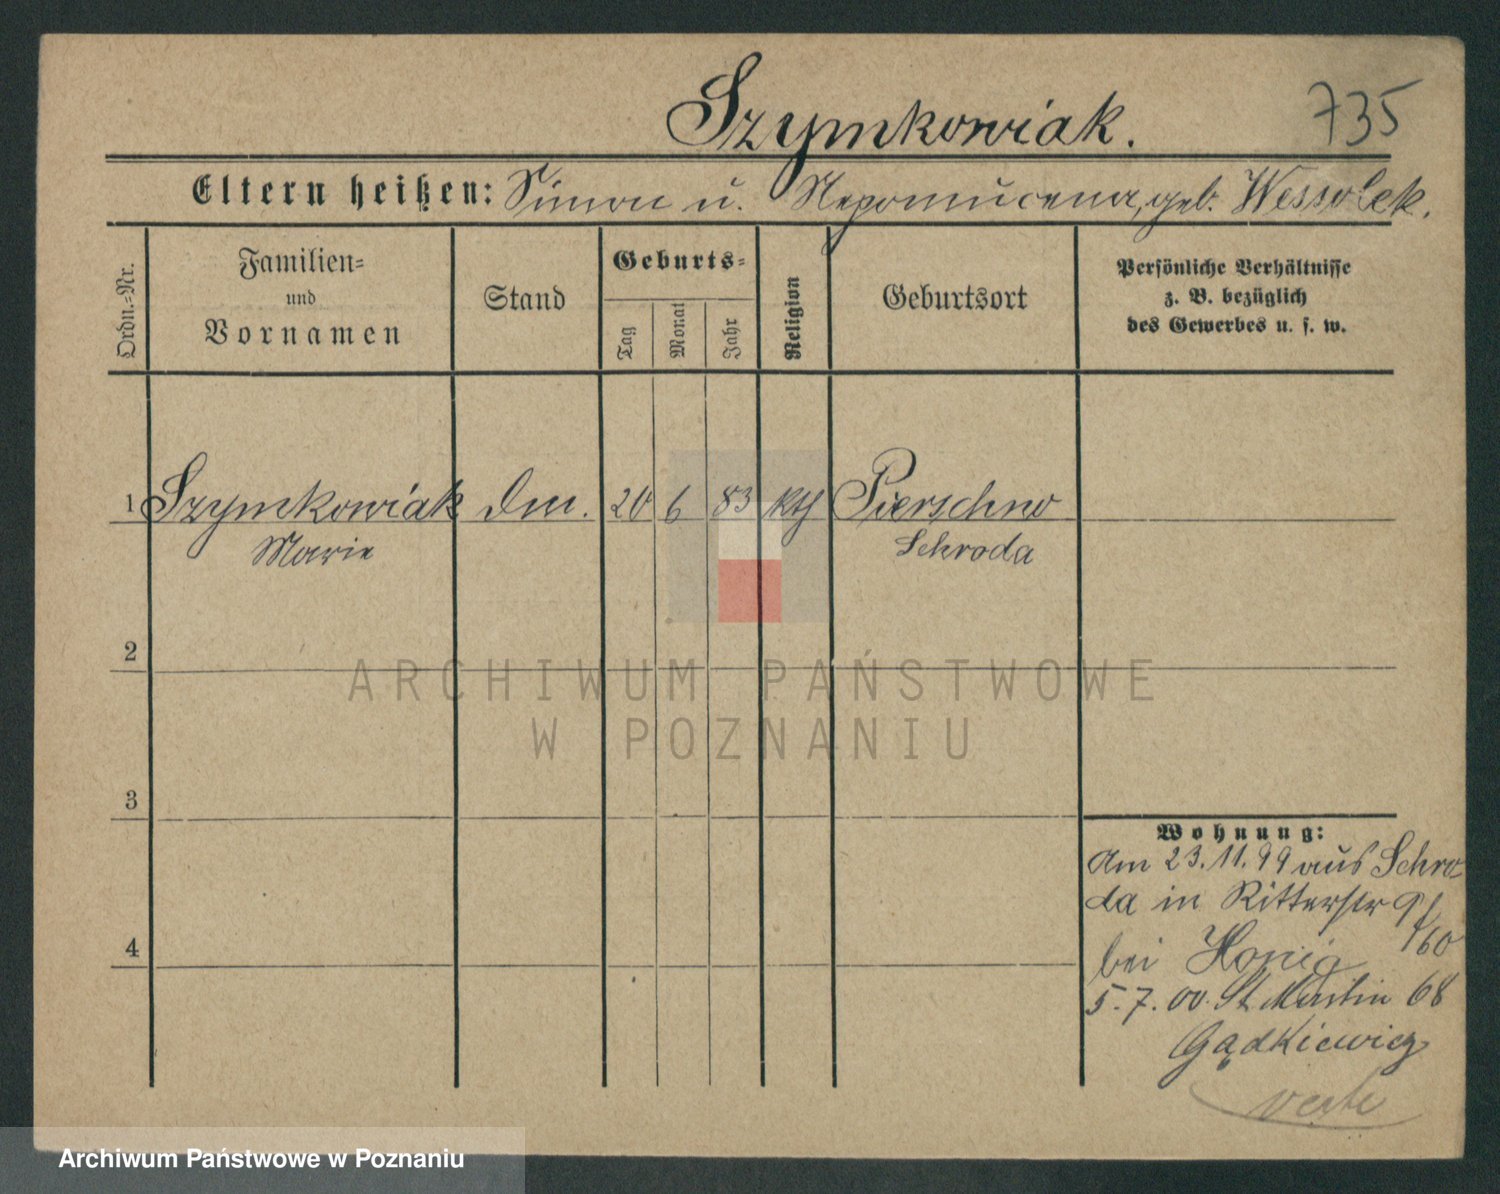 735
Szymkowiak.
Eltern heißen: Simon u. Nepomucena, geb. Wessolek.
Ordn.-Nr.
Familien-
und
Vornamen
Stand
Geburts-
Tag
Monat
Jahr
Religion
Geburtsort
Persönliche Verhältnisse
z. B. bezüglich
des Gewerbes u. s. w.
1 Szymkowiak Dm. 20 6 83 kth Pierschno
Marie Schroda
2
ARCHIWUM PAŃSTWOWE
W POZNANIU
3
Wohnung:
Am 23.11.99 aus Schro-
da in Ritterstr 9/
60
4
bei Honig
5.7.00. St Martin 68
Gądkiewicz
verte
Archiwum Państwowe w Poznaniu